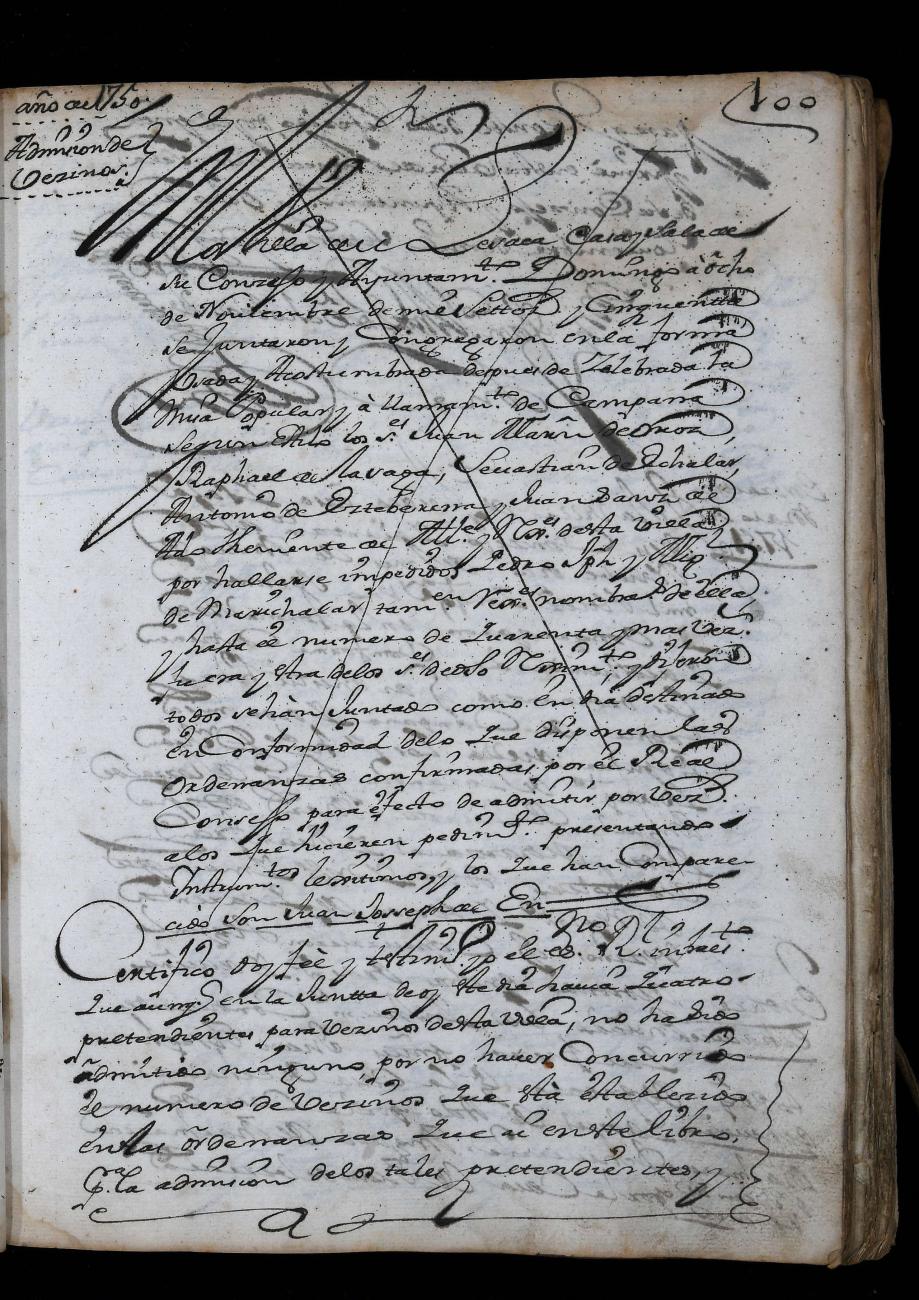 año de 1750.
Admision de
Vezinos.
100
En la Villa de Lesaca Casa y Sala de
su Conzejo y Ayuntam.to Domingo à ocho
de Noviembre de mil Settos y Cinquenta
se Juntaron y Congregaron en la forma
Usada y Acostumbrada despues de Zelebrada la
Misa Popular y à llamam.to de Campana
segun Estilo los s.es Juan Martin de
Raphael de, Sebastian de Echalar
Antonio de y Juan de
Theniente de Alle y Res.es desta Villa
por hallarse impedidos Pedro Jph y Mig.
de Marichalar tam.en nombra.s de ella
y hasta el numero de Quarenta y mas Vez.
fuera y destra delos s.es de dho Rexim.to y
todos se hàn Juntado como en dia destinado
en Conformidad delo Que disponen las
Ordenanzas confirmadas por el Real
Consejo para efecto de admitir por Vez.s
alos Que hicieren pedim.to presentando
Instrum.tos lexitimos, y los Que han Compare
cido son Juan Josseph de En
Certifico doy feè y testim.o yo el es.no R.l infraes.to
Que aunq.e en la Juntta de oy este dia havia Quatro
pretendientes para Vezinos desta Villa, no ha sido
admitido ninguno, por no haver Concurrido
el numero de Vezinos Que està establezido
en las ordenanzas Que ai en este libro,
p.a la admision delos tales pretendientes, y